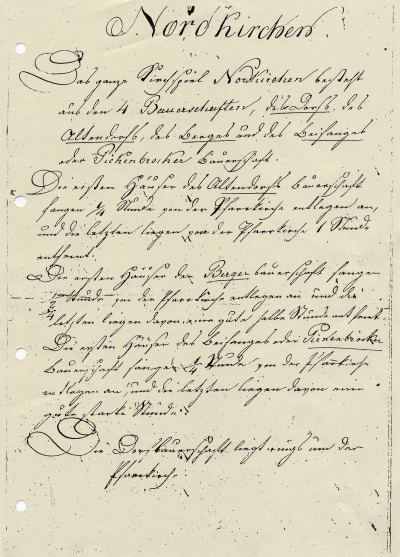 Nordkirchen.
Das ganze Kirchspiel Nordkirchen besteht
aus den 4 Bauerschaften, des Dorfs, des
Altendorfs, des Berges und des Beifanges
oder Piekenbrocker Bauerschaft.
Die ersten Häuser des Altendorfs Bauerschaft
fangen 1/4 Stunde von der Pfarrkirche entlegen an,
und die letzten liegen von der Pfarrkirche 1 Stunde
entfernt.
Die ersten Häuser der Berger bauerschaft fangen
1/4 Stunde von der Pfarrkirche entlegen an und die
letzten liegen davon eine gute halbe Stunde entfernt.
Die ersten Häuser des Beifanges oder
Bauerschaft fangen 1/4 Stunde von der Pfarrkirche
entlegen an und die letzten liegen davon eine
gute starke Stunde.
Die Dorfbauerschaft liegt rings um der
Pfarrkirche.